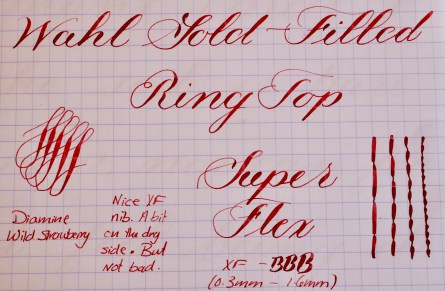 Wahl Gold-Filled
Ring Top
Super
Flex
XF - BBB
(0.3mm - 1.6mm)
Diamine
Wild Strawberry
Nice XF
nib. A bit
on the dry
side. But
not bad.